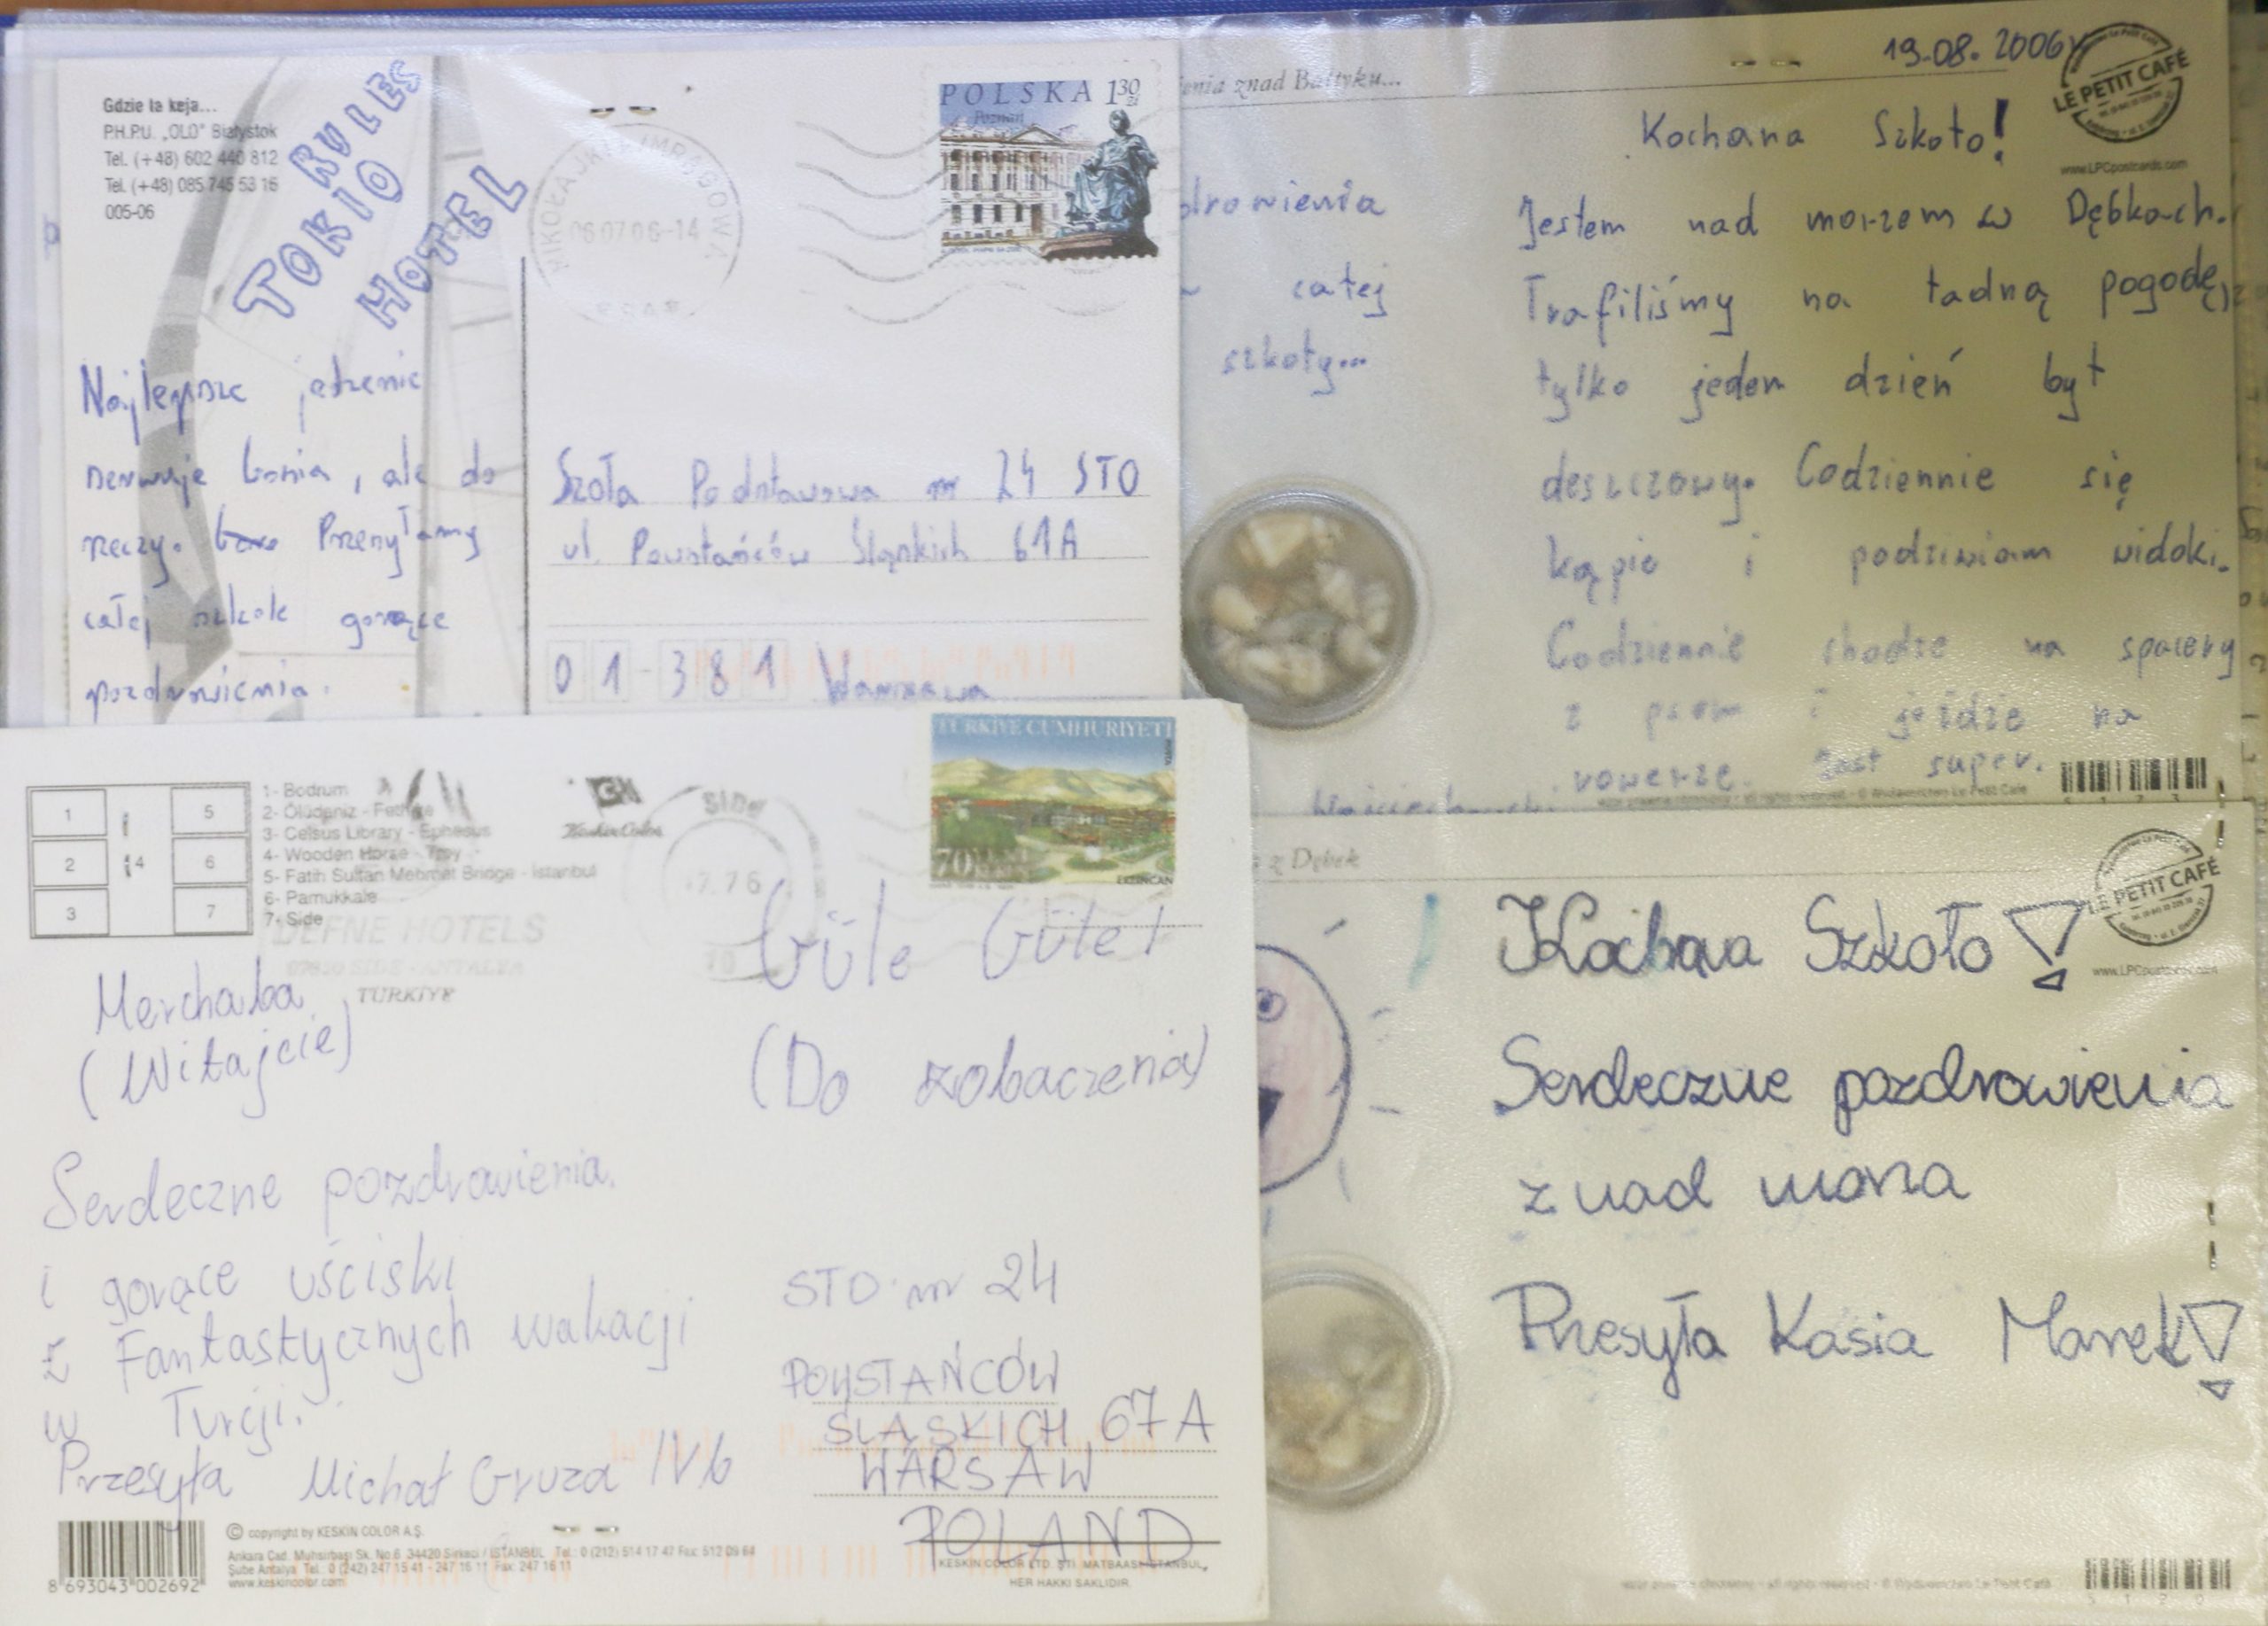 Gdzie ta keja...
P.H.P.U. „OLO" Białystok
Tel. (+48) 602 440 812
Tel. (+48) 085 745 53 16
005-06
TOKIO
HOTEL
RULES
POLSKA 130 zł
Poznań
06 07 06-14
Najlepsze jedzenie
serwuje Gonia, ale do
rzeczy. Przesyłamy
całej szkole gorące
pozdrowienia.
Szoła Podstawowa nr 24 STO
ul. Powstańców Śląskich 61A
01-381 Warszawa
znad Bałtyku...
całej
szkoły...
19.08.2006
LE PETIT CAFÉ
www.LPCpostcards.com
Kochana Szkoło!
Jestem nad morzem w Dębkach.
Trafiliśmy na ładną pogodę,
tylko jeden dzień był
deszczowy. Codziennie się
kąpie i podziwiam widoki.
Codziennie chodze na spacery
z psem i jeżdże na
rowerze. Jest super.
TÜRKİYE CUMHURİYETİ
ERZİNCAN
1
2
3
4
5
6
7
1- Bodrum
2- Ölüdeniz - Fethiye
3- Celsus Library - Ephesus
4- Wooden Horse - Troy
5- Fatih Sultan Mehmet Bridge - İstanbul
6- Pamukkale
7- Side
Keskin Color
SIDE
DEFNE HOTELS
07330 SIDE - ANTALYA
TÜRKİYE
Merchaba
(Witajcie)
Serdeczne pozdrowienia
i gorące uściski
z Fantastycznych wakacji
w Turcji.
Przesyła Michał Gruza IVb
Güle Güle!
(Do zobaczenia)
STO nr 24
POWSTAŃCÓW
ŚLĄSKICH 67A
WARSAW
POLAND
8 693043 002692
© copyright by KESKİN COLOR A.Ş.
Ankara Cad. Muhsirbaşı Sk. No:6 34420 Sirkeci / İSTANBUL Tel.: 0 (212) 514 17 47 Fax: 512 09 64
Şube Antalya Tel.: 0 (242) 247 15 41 - 247 16 11 Fax: 247 16 11
www.keskincolor.com
KESKİN COLOR LTD. ŞTİ. MATBAASI İSTANBUL,
HER HAKKI SAKLIDIR.
z Dębek
LE PETIT CAFÉ
Kochana Szkoło!
Serdeczne pozdrowienia
znad morza
Przesyła Kasia Marek!